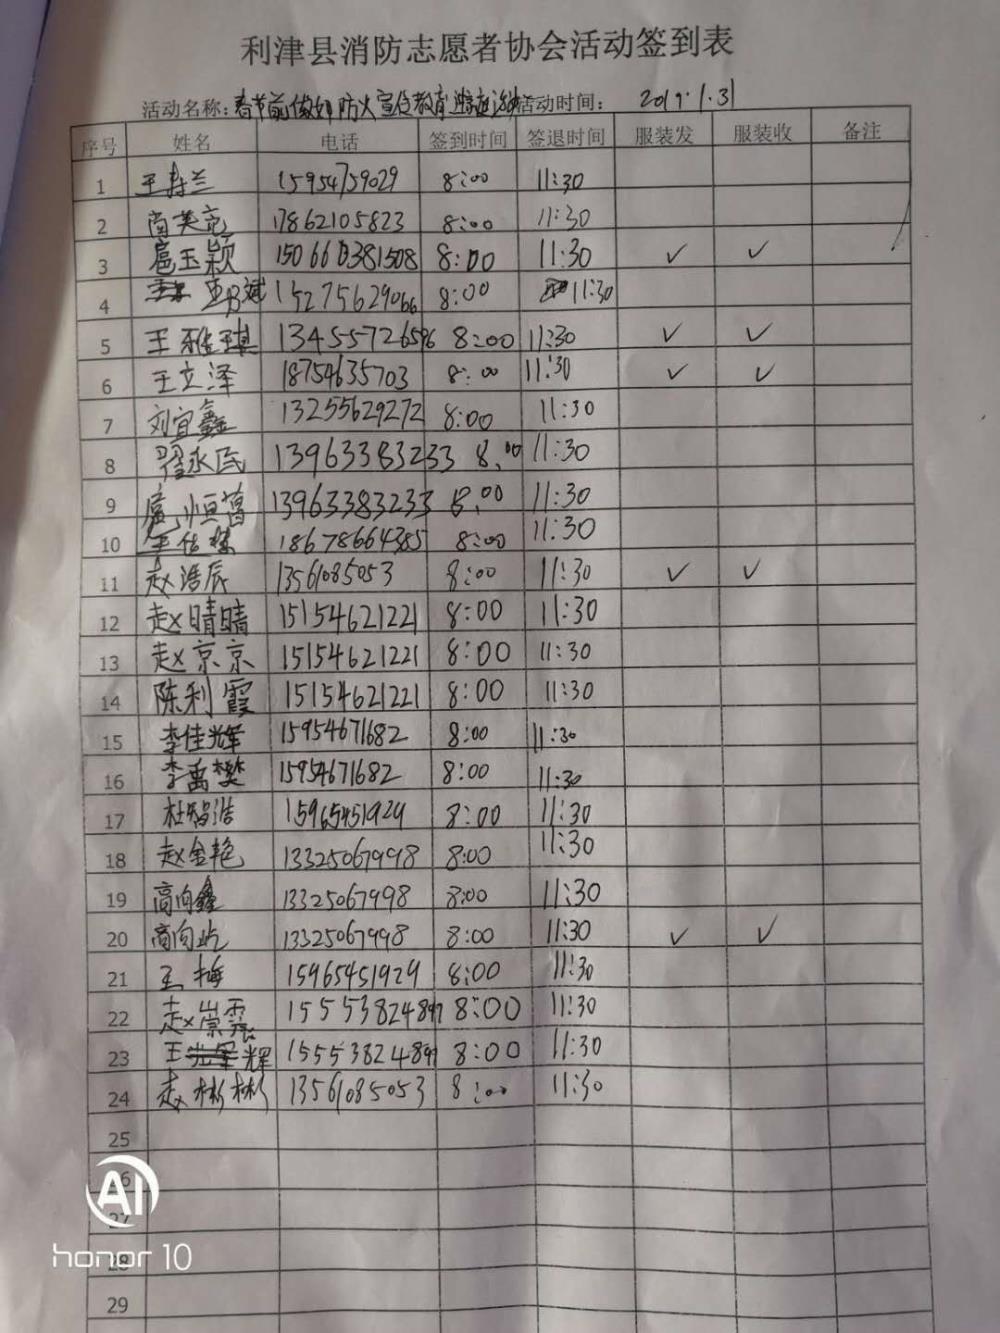 利津县消防志愿者协会活动签到表
活动名称：春节前做好防火宣传教育 活动时间： 2019.1.31
序号 姓名 电话 签到时间 签退时间 服装发 服装收 备注
1 王寿兰 15954759029 8:00 11:30
2 尚英亮 17862105823 8:00 11:30
3 扈玉颖 8:00 11:30 ✓ ✓
4 15275629066 8:00 11:30
5 王雅琪 13455572656 8:00 11:30 ✓ ✓
6 王立泽 18754635703 8:00 11:30 ✓ ✓
7 刘宜鑫 13255629272 8:00 11:30
8 翟永民 13963383233 8:00 11:30
9 扈恒菖 13963383233 8:00 11:30
10 18678664385 8:00 11:30
11 赵浩辰 13561085053 8:00 11:30 ✓ ✓
12 赵晴晴 15154621221 8:00 11:30
13 赵京京 15154621221 8:00 11:30
14 陈利霞 15154621221 8:00 11:30
15 李佳辉 15954671682 8:00 11:30
16 李禹樊 15954671682 8:00 11:30
17 杜智浩 15965451929 8:00 11:30
18 赵金艳 13325067998 8:00 11:30
19 高向鑫 13325067998 8:00 11:30
20 高向屹 13325067998 8:00 11:30 ✓ ✓
21 王梅 15965451929 8:00 11:30
22 赵崇霖 15553824897 8:00 11:30
23 王 辉 15553824897 8:00 11:30
24 赵彬彬 13561085053 8:00 11:30
25
26
27
28
29
AI
honor 10